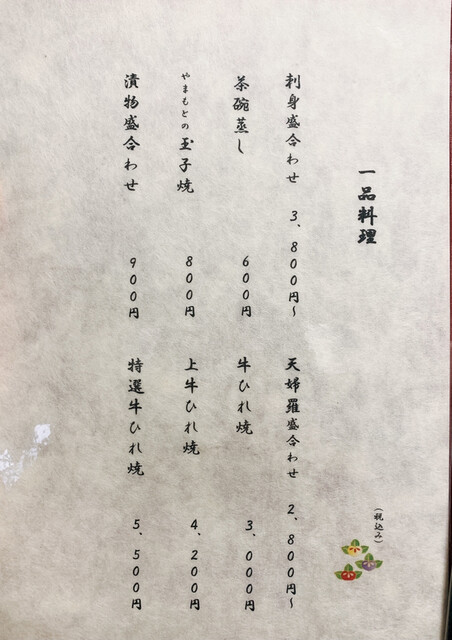 一品料理
(税込み)
刺身盛合わせ 3、800円〜
天婦羅盛合わせ 2、800円〜
茶碗蒸し 600円
牛ひれ焼 3、000円
やまもとの玉子焼 800円
上牛ひれ焼 4、200円
漬物盛合わせ 900円
特選牛ひれ焼 5、500円